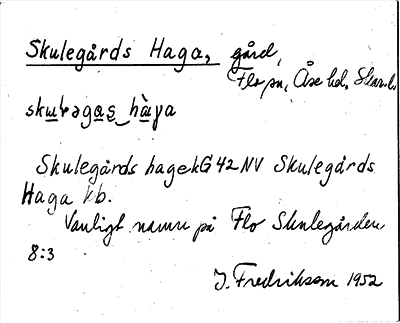 Skulegårds Haga, gård,
Flo sn, Åse hd, Skarab.
skuləgaṣ hàga
Skulegårds hage ekG 42 NV Skulegårds
Haga kb.
Vanligt namn på Flo Skulegården
8:3
J. Fredriksson 1952